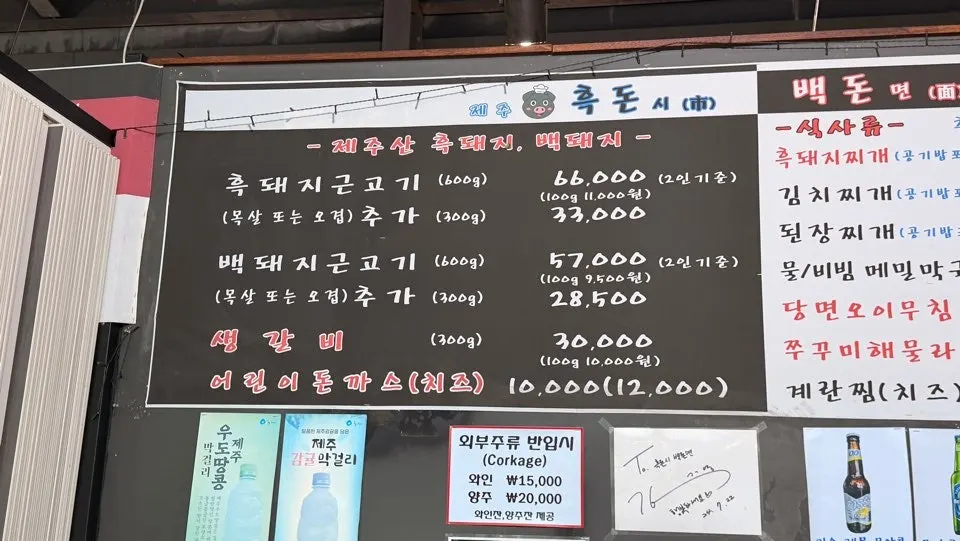 제주 흑돈 시 (市)
- 제주산 흑돼지, 백돼지 -
흑돼지근고기 (600g) 66,000 (2인기준)
(100g 11,000원)
(목살 또는 오겹) 추가 (300g) 33,000
백돼지근고기 (600g) 57,000 (2인기준)
(100g 9,500원)
(목살 또는 오겹) 추가 (300g) 28,500
생갈비 (300g) 30,000
(100g 10,000원)
어린이돈까스(치즈) 10,000(12,000)
백돈 면 (面)
-식사류-
흑돼지찌개 (공기밥포
김치찌개 (공기밥
된장찌개 (공기밥
물/비빔 메밀막국
당면오이무침
쭈꾸미해물라
계란찜(치즈)
제주
우도땅콩
막걸리
제주
감귤막걸리
외부주류 반입시
(Corkage)
와인 ₩15,000
양주 ₩20,000
와인잔,양주잔 제공
To.